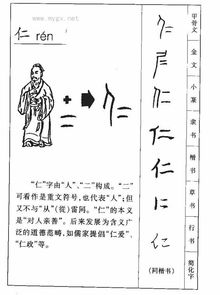 www.mygx.net
仁 rén
仁
“仁”字由“人”、“二”构成。“二”
可看作是重文符号，也代表“人”；但
又不与“从”（從）雷同。“仁”的本义
是“对人亲善”。后来发展为含义广
泛的道德范畴，如儒家提倡“仁爱”、
“仁政”等。
仁
仁
仁
仁
仁
仁
仁
（同楷书）
甲骨文
金文
小篆
隶书
楷书
草书
行书
简化字